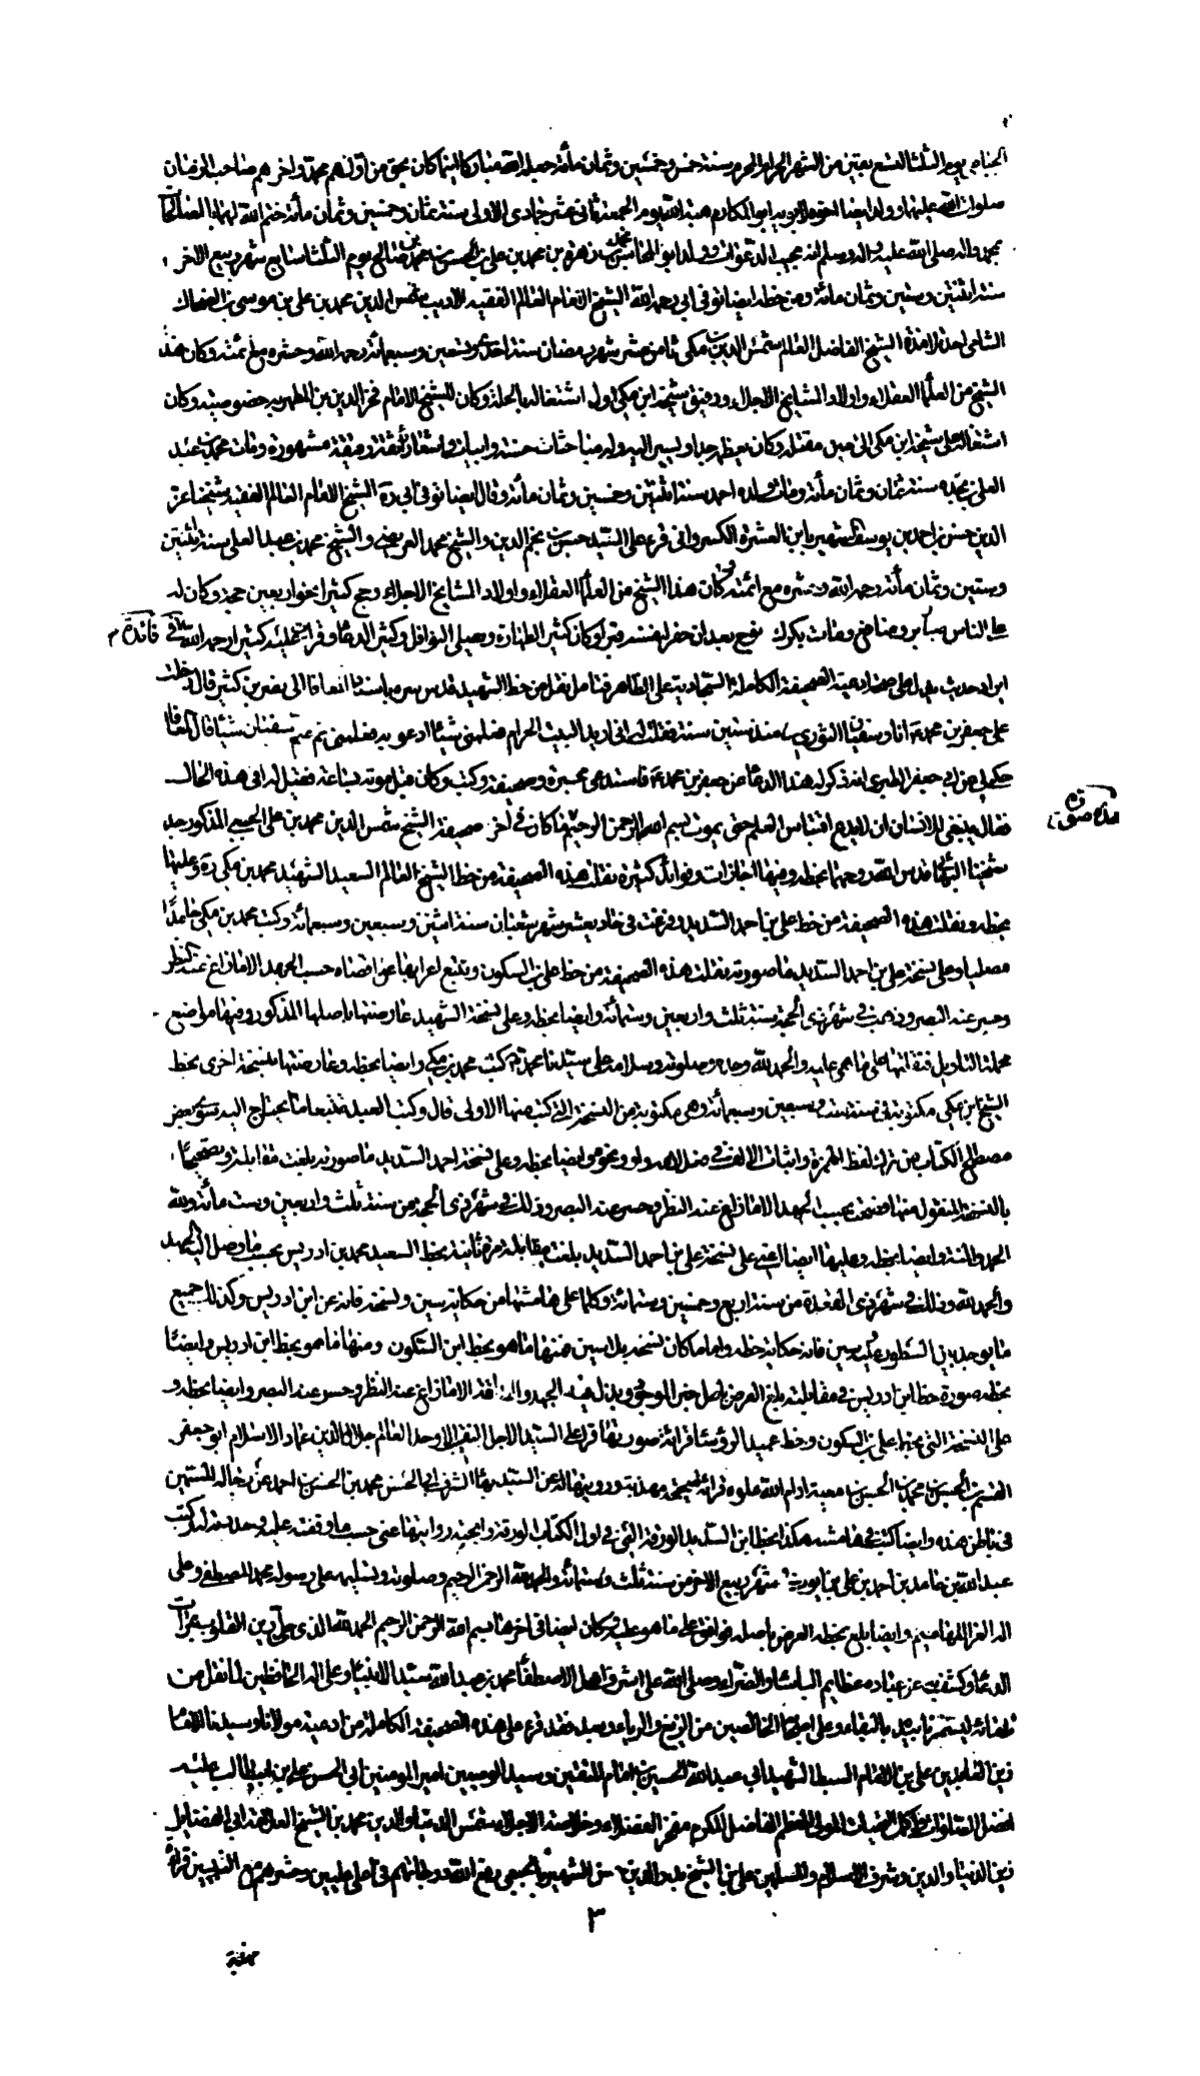 يوم الثلثا لتسع بقين من الشهر الحرام المحرم سنة خمس وخمسين وثمان مأة جعله الله مباركا اينما كان بحق من اولهم محمد واخرهم صاحب الزمان
صلوات الله عليهما وولد ايضا اخوه ابو المكارم هبة الله يوم الجمعة ثاني عشر جمادى الاولى سنة ثمان وخمسين وثمان مأة ختم الله لهما بالصالحات
بمحمد واله صلى الله عليه واله وسلم انه مجيب الدعوات وولد ابو المحاسن زهرة بن محمد بن علي بن الحسن بن محمد بن صالح يوم الثلثا سابع شهر ربيع الاخر
سنة اثنتين وستين وثمان مائة ومن خطه ايضا توفي ابي رحمه الله الشيخ الامام العالم الفقيه الاديب شمس الدين محمد بن علي بن موسى بن الضحاك
الشامي احد تلامذة الشيخ الفاضل العالم شمس الدين بن مكي ثامن عشر شهر رمضان سنة احدى وتسعين وسبعمائة رحمه الله وحشره مع ائمته وكان هذا
الشيخ من العلماء العقلاء واولاد المشايخ الاجلاء ورفيق شيخه ابن مكي اول اشتغاله بالحلة وكان للشيخ الامام فخر الدين بن المطهر به خصوصية وكان
اشتغاله على شيخه ابن مكي الى حين مقتله وكان يعظمه جدا ويسير اليه وله مباحثات حسنة وابيات واشعار رائقة دقيقة مشهورة ومات محمد بن عبد
العلي بن نجده سنة ثمان وثمان مأة ومات ولده احمد سنة اثنتين وخمسين وثمان مائة وقال ايضا توفي ابي ره الشيخ الامام العالم الفقيه شيخنا عز
الدين حسن بن احمد بن يوسف الشهير بابن العشرة الكسرواني قرء على السيد حسن بن نجم الدين والشيخ محمد العريضي والشيخ محمد بن عبد العلي سنة اثنتين
وستين وثمان مأة رحمه الله وحشره مع ائمته وكان هذا الشيخ من العلماء العقلاء واولاد المشايخ الاجلاء وحج كثيرا نحو اربعين حجة وكان له
على الناس مبار ومنافع ومات بكرك نوح بعد ان حفر لنفسه قبرا وكان كثير الطهارة ويصلي النوافل وكثير الدعاء وقرأت عليه كثيرا رحمه الله تعالى فائدة في
ايراد حديث يدل على مضادعية الصحيفة الكاملة السجادية على الظاهر فيما نقل من خط الشهيد قدس سره باسناد المعافا الى نصر بن كثير قال دخلت
على جعفر بن محمد ع انا وسفيان الثوري منذ ستين سنة فقلت له اني اريد البيت الحرام فعلمني شيئا ادعو به فعلمني ثم علم سفيان شيئا قال المعافا
حكي لي عن ابي جعفر الطبري انه ذكر له هذا الدعا عن جعفر بن محمد ع فاستدعى محبرة وصحيفة وكتبه وكان قبل موته بساعة فقيل له افي هذه الحال
فقال ينبغي للانسان ان لا يدع اقتباس العلم حتى يموت بسم الله الرحمن الرحيم ما كان في آخر صحيفة الشيخ شمس الدين محمد بن علي الجبعي المذكور جد
شيخنا البهائي قدس الله روحهما بخطه وفيها اجازات وفوائد كثيرة نقلت هذه الصحيفة من خط الشيخ العالم السعيد الشهيد محمد بن مكي ره وعليها
بخطه ونقلت هذه الصحيفة من خط علي بن احمد السديد وفرغت في حادي عشر شهر شعبان سنة اثنتين وسبعين وسبعمائة وكتب محمد بن مكي حامدا
مصليا وعلى نسخة علي بن احمد السديد ما صورته نقلت هذه الصحيفة من خط علي بن السكون وتتبع اعرابها عن اقصاه حسب الجهد الا ما زاغ عنه النظر
وحسر عنه البصر وذلك في شهر ذي الحجة سنة ثلث واربعين وستمأة وايضا بخطه وعلى نسخة الشهيد عارضتها باصلها المذكور وفيها مواضع
مهملة التاويل فنقلتها على ما هي عليه والحمد لله وحده وصلوته وسلامه على سيدنا محمد وآله كتب محمد بن مكي وايضا بخطه وعارضتها بنسخة اخرى بخط
الشيخ ابن مكي مكتوبة في سنة ست وسبعين وسبعمأة وهي مكتوبة من النسخة التي كتب منها الاولى قال وكتب العبد
مصطلح الكتاب من ترك لفظ الهمزة واثبات الالف في ونحوه وايضا بخطه وعلى نسخة احمد السديد ما صورته بلغت مقابلة وتصحيحا
بالنسخة المنقول منها فصحت بحسب الجهد الا ما زاغ عنه النظر وحسر عنه البصر وذلك في شهر ذي الحجة من سنة ثلث واربعين وست مأة ولله
الحمد والمنة وايضا بخطه وعليها ايضا اعني على نسخة علي بن احمد السديد بلغت مقابلة مرة ثانية بخط السعيد محمد بن ادريس بحسب ما وصل اليه الجهد
والحمد لله وذلك في شهر ذي القعدة من سنة اربع وخمسين وستمائة وكلما على هامشها من حكاية سين ونسخة فانه عن ابن ادريس وكذلك جميع
ما يوجد بين السطور عليه سين فانه حكاية خطه واما ما كان نسخه بلا سين فمنها ما هو بخط ابن السكون ومنها ما هو بخط ابن ادريس وايضا
بخطه صورة خط ابن ادريس في مقابلته بلغ العرض باصل خير الموجود وبذل فيه الجهد والطاقة الا ما زاغ عنه النظر وحسر عنه البصر وايضا بخطه و
على النسخة التي بخط علي بن السكون وخط عميد الرؤسا قراءة صورتها قرأ علي السيد الاجل النقيب الاوحد العالم جلال الدين عماد الاسلام ابو جعفر
القسم بن الحسن بن محمد بن الحسن بن معية ادام الله علوه قراءة صحيحة مهذبة ورويتها له عن السيد بهاء الشرف ابي الحسن محمد بن الحسن بن احمد عن رجاله المسمين
في باطن هذه وايضا كتبت في هامشه هكذا بخط ابن السديد الورقة التي في اول الكتاب الورقة وابحته روايتها عني حسب ما وقفته عليه وحددته له وكتب
هبة الله بن حامد بن احمد بن علي بن ايوب شهر ربيع الاخر من سنة ثلث وستمائة والحمد لله الرحمن الرحيم وصلوته وتسليمه على رسوله محمد المصطفى وعلى
اله الغر اللهاميم وايضا بلغ بخطه العرض باصله فوافق على ما هو عليه وكان ايضا في اخرها بسم الله الرحمن الرحيم الحمد لله الذي
الدعا وكشف عن عباده عظايم الباساء والضراء وصلى الله على اشرف اهل الاصطفاء محمد بن عبد الله سيد الانبياء وعلى اله الحافظين لما نقل من
بالبقاء وعلى اصحابه الخالصين من الزيغ والرياء وبعد فقد قرء علي هذه الصحيفة الكاملة من ادعية مولانا وسيدنا الامام
زين العابدين علي بن الامام السبط الشهيد ابي عبد الله الحسين بن امام المتقين وسيد الوصيين امير المؤمنين ابي الحسن علي بن ابيطالب عليه
افضل الصلوات واكمل التحيات المولى المعظم الفاضل المكرم مفخر الفضلاء وخلاصة الاجلاء شمس الدنيا والدين محمد بن الشيخ العلامة ابي الفضايل
زين الدنيا والدين وشرف الاسلام والمسلمين علي بن الشيخ بدر الدين حسن الشهير بالجبعي رفع الله درجاتهم في اعلى عليين وحشرهم مع النبيين قراءة
٣